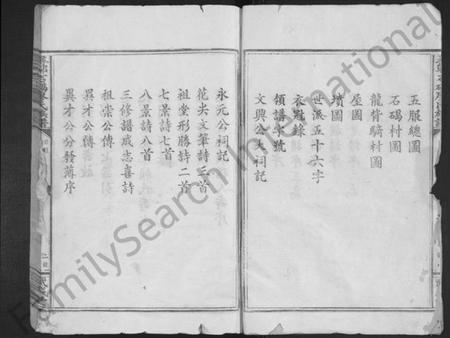 五服總圖
石碣村圖
龍骨騎村圖
屋圖
墳圖
世派五十六字
衣冠錄
領譜字號
文興公大祠記
永元公祠記
花尖文筆詩三首
祖堂形勝詩二首
七景詩七首
八景詩八首
三修譜成志喜詩
祖崇公傳
異才公傳
異才公分發蕩序
FamilySearch International